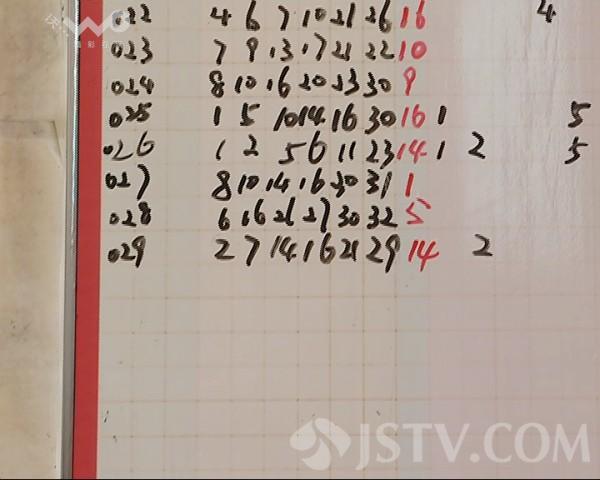 022 4 6 7 10 21 26 16 4
023 7 9 13 17 21 22 10
024 8 10 16 20 23 30 9
025 1 5 10 14 16 30 16 1 5
026 1 2 5 6 11 23 14 1 2 5
027 8 10 14 16 30 31 1
028 6 16 26 27 30 32 5
029 2 7 14 16 21 29 14 2
JSTV.COM